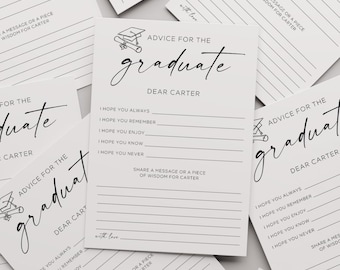 ADVICE FOR THE
graduate
DEAR CARTER
I HOPE YOU ALWAYS
I HOPE YOU REMEMBER
I HOPE YOU ENJOY
I HOPE YOU KNOW
I HOPE YOU NEVER
SHARE A MESSAGE OR A PIECE
OF WISDOM FOR CARTER
with love
SHARE A MESSAGE OR A PIECE
OF WISDOM FOR CARTER
ADVICE FOR THE
graduate
DEAR CARTER
I HOPE YOU ALWAYS
I HOPE YOU REMEMBER
I HOPE YOU ENJOY
I HOPE YOU KNOW
I HOPE YOU NEVER
ADVICE FOR THE
graduate
DEAR CARTER
I HOPE YOU ALWAYS